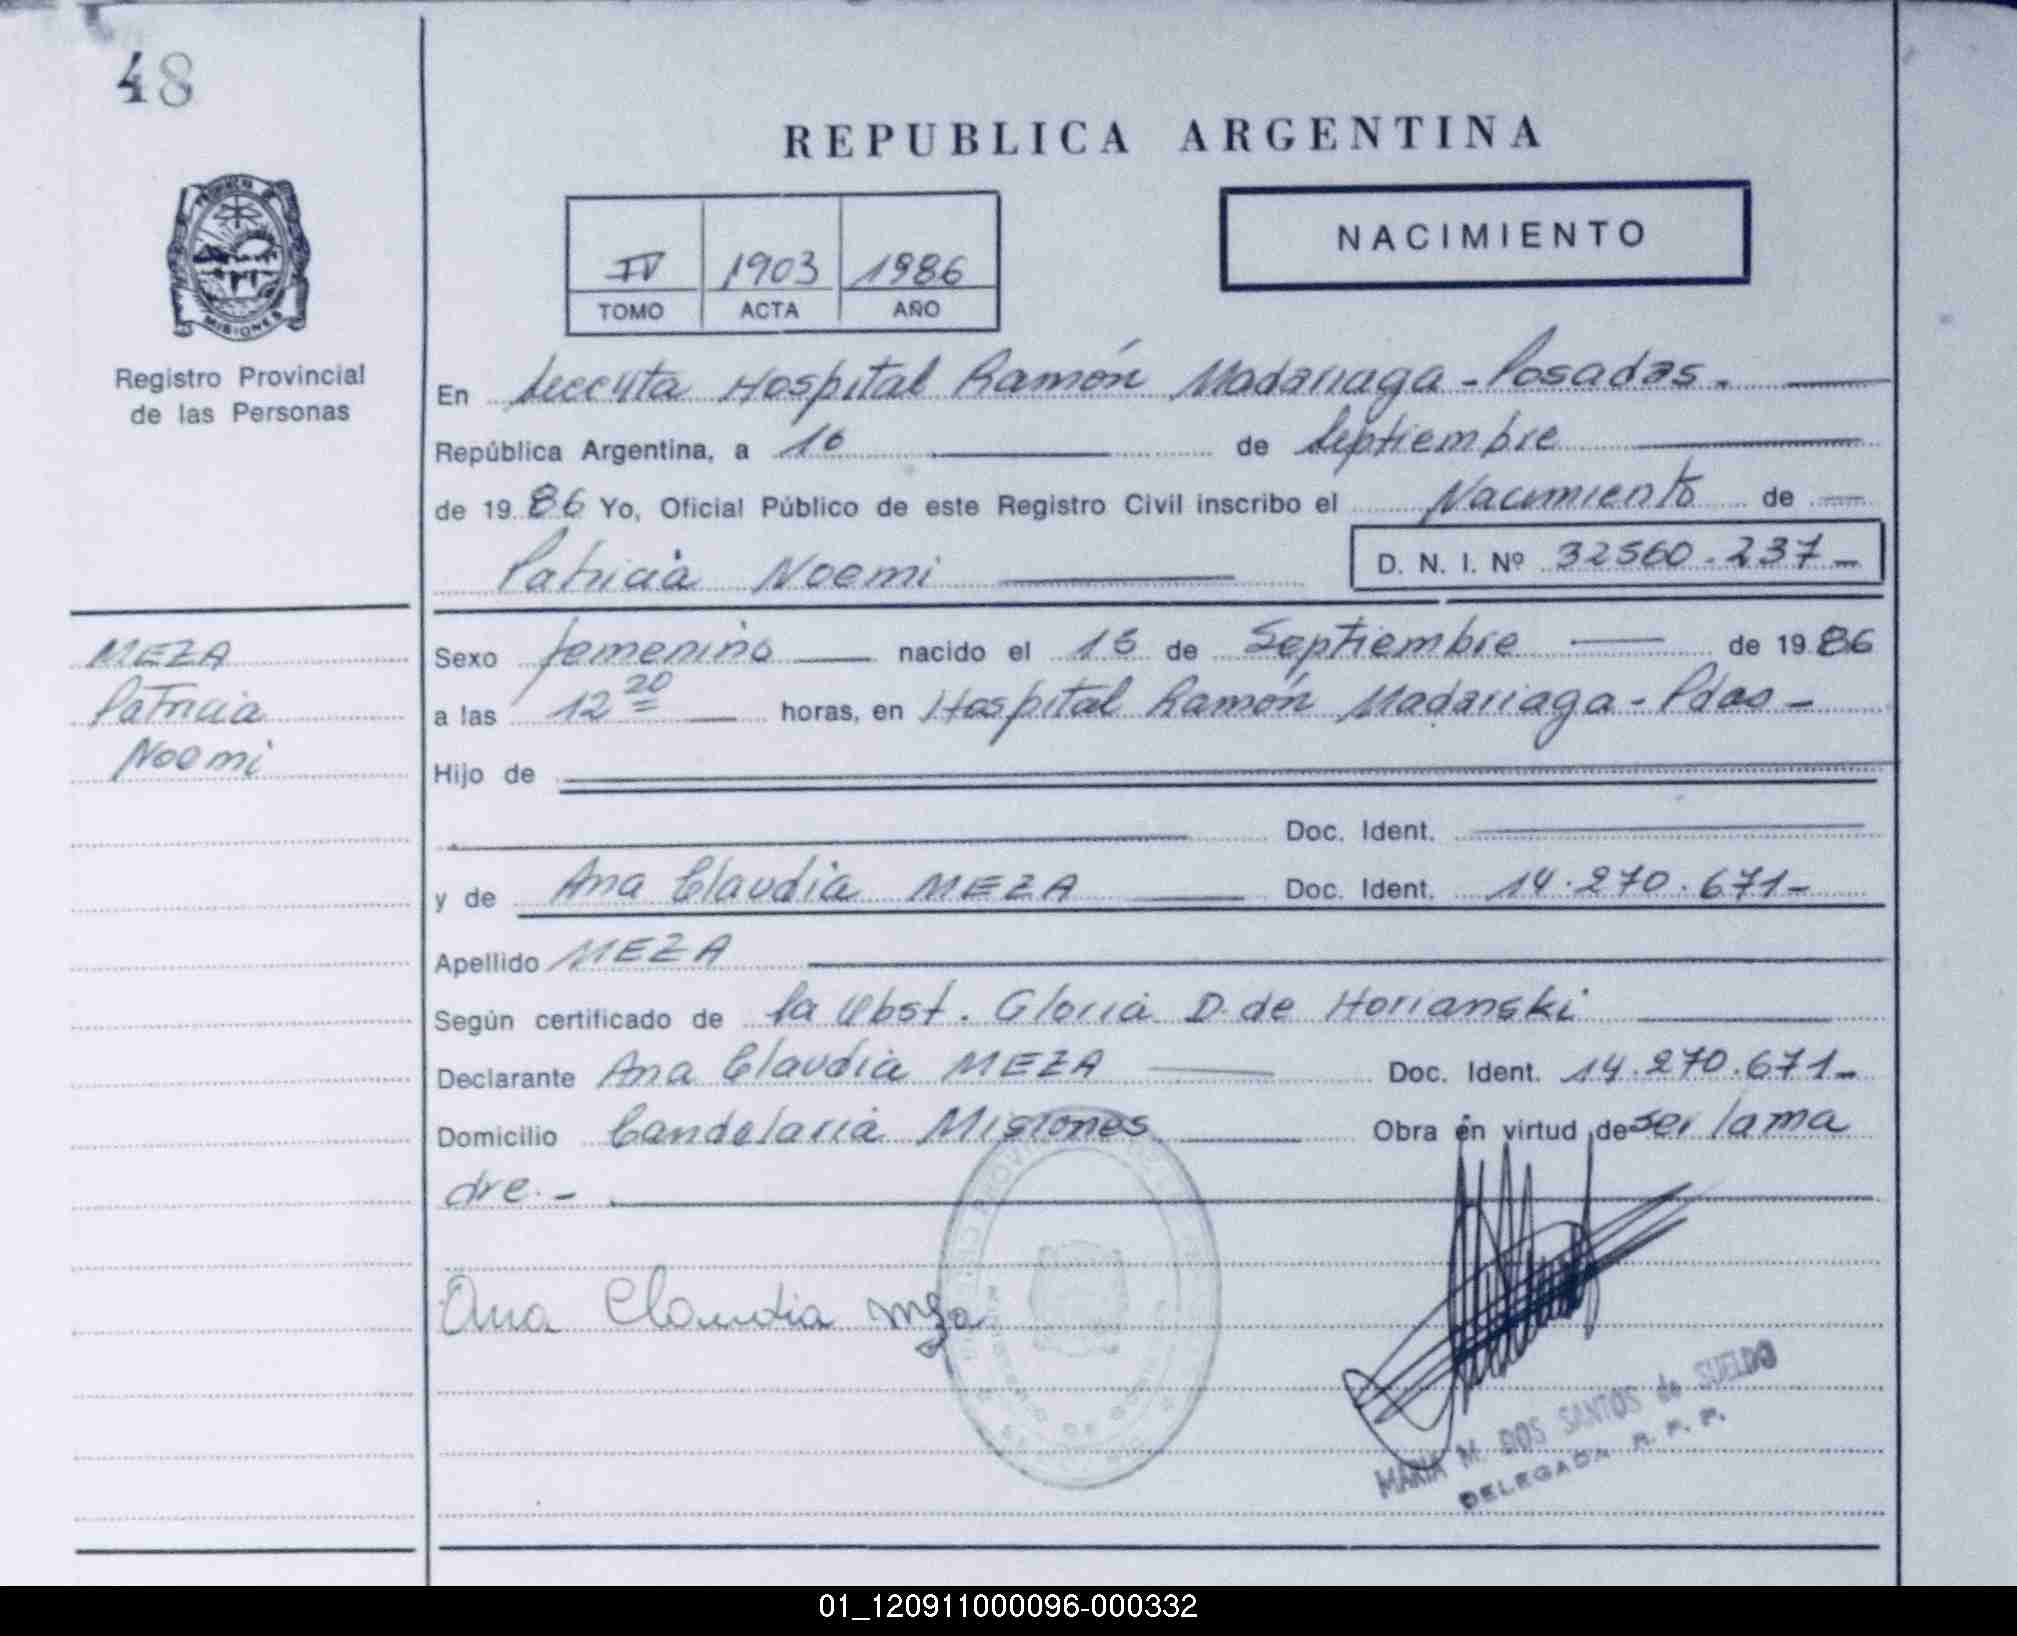 48
REPUBLICA ARGENTINA
PROVINCIA DE
MISIONES
Registro Provincial
de las Personas
IV 1903 1986
TOMO ACTA AÑO
NACIMIENTO
En Seccyta Hospital Ramón Madariaga - Posadas.
República Argentina, a 16 de Septiembre
de 19 86 Yo, Oficial Público de este Registro Civil inscribo el Nacimiento de
Patricia Noemi D. N. I. Nº 32560.237-
MEZA
Patricia
Noemi
Sexo femenino nacido el 15 de Septiembre de 19 86
a las 12 20 horas, en Hospital Ramón Madariaga - Pdas -
Hijo de
Doc. Ident.
y de Ana Claudia MEZA Doc. Ident. 14.270.671-
Apellido MEZA
Según certificado de la Obst. Gloria D. de Horianski
Declarante Ana Claudia MEZA Doc. Ident. 14.270.671-
Domicilio Candelaria Misiones Obra en virtud de ser la ma
dre.-
Ana Claudia Meza
MARIA M. DOS SANTOS de SUELDO
DELEGADA R. P. P.
01_120911000096-000332